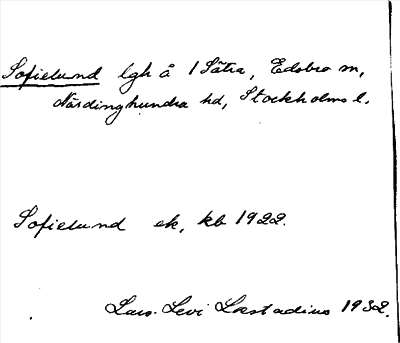 Sofielund lgh å 1 Sätra, Edsbro sn,
Närdinghundra hd, Stockholms l.
Sofielund ek, kb 1922.
Lars-Levi Læstadius 1932.